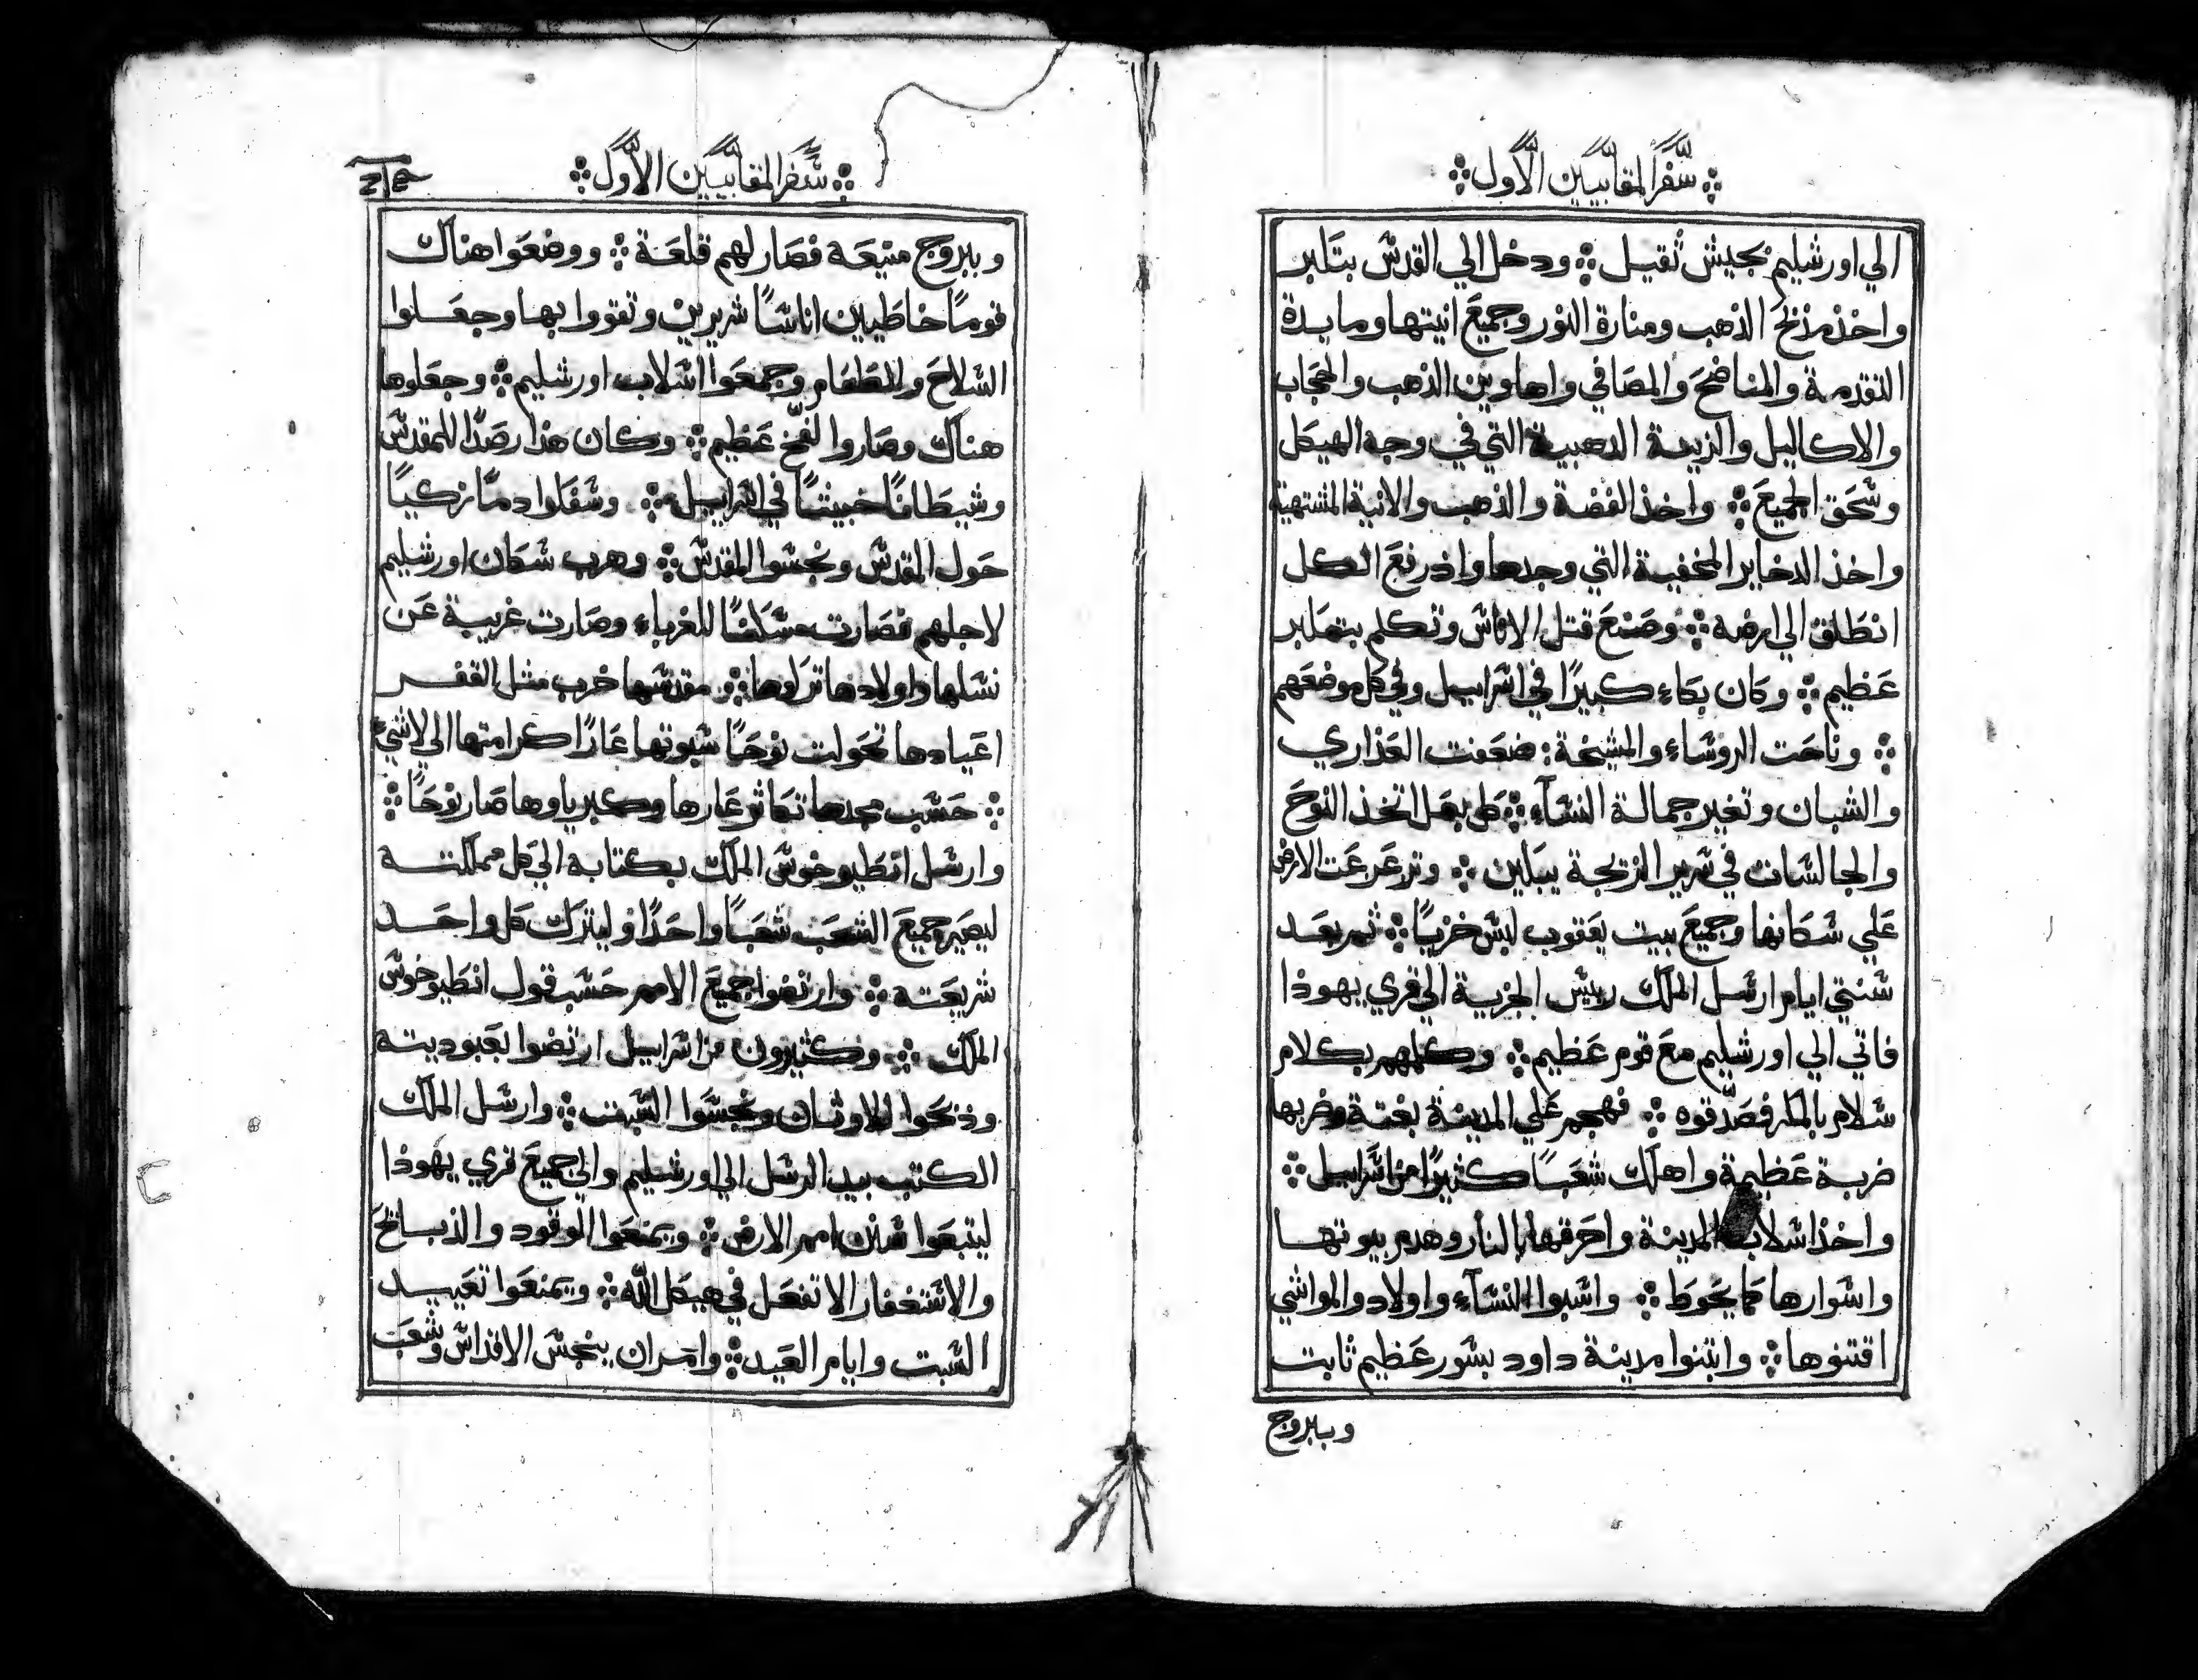 سفر المقابيين الاول
الي اورشليم بجيش ثقيل ۞ ودخل الي القدس بتكبر
واخذ مذبح الذهب ومنارة النور وجميع انيتها ومايدة
التقدمة والمناضح والمصافي واهاوين الذهب والحجاب
والاكاليل والزينة الدهبية التي في وجه الهيكل
وسحق الجميع ۞ واخذ الفضة والذهب والانية المشتهية
واخذ الدخاير المخفية التي وجدها واذ رفع الكل
انطلق الي ارضه ۞ وصنع قتل الاناس وتكلم بتكبر
عظيم ۞ وكان بكاء كبيرًا في اسراييل وفي كل موضعهم
۞ وناحت الروساء والمشيخة: ضعفت العذاري
والشبان وتغير جمالة النسآء ۞ كل بعل اتخذ النوح
والجالسات في سرير الزيجة يبكين ۞ وتزعزعت الارض
علي سكانها وجميع بيت يعقوب لبس خزيًا ۞ ثم بعد
سنتي ايام ارسل الملك رييس الجزية الي قري يهوذا
فاتي الي اورشليم مع قوم عظيم ۞ وكلمهم بكلام
سلام بالمكر فصدّقوه ۞ فهجم علي المدينة بغتة وضربها
ضربة عظيمة واهلك شعبًا كثيرًا من اسراييل ۞
واخذ اسلاب المدينة واحرقها بالنار وهدم بيوتها
واسوارها كما يحوط ۞ واسبوا النسآء واولاد والمواشي
اقتنوها ۞ وابتنوا مدينة داود بسور عظيم ثابت
وببروج
سفر المقابيين الاول
وببروج منيعة فصار لهم قلعة ۞ ووضعوا هناك
قومًا خاطيين اناسًا شريرين وتقووا بها وجعلوا
السلاح والطعام وجمعوا اسلاب اورشليم ۞ وجعلوها
هناك وصاروا لفخ عظيم ۞ وكان هذا رصدًا للمقدس
وشيطانًا خبيثًا في اسراييل ۞ وسفكوا دمًا زكيًا
حول المقدس ونجسوا المقدس ۞ وهرب سكان اورشليم
لاجلهم فصارت مسكنًا للغرباء وصارت غريبة عن
نسلها واولادها تركوها ۞ مقدسها خرب مثل القفر
اعيادها تحولت نوحًا سبوتها عارًا كرامتها الي لاشيء
۞ حسب مجدها تكاثر عارها وكبرياوها صار نوحًا ۞
وارسل انطيوخوس الملك بكتابه الي كل مملكته
ليصير جميع الشعب شعبًا واحدًا وليترك كل واحد
شريعته ۞ وارتضوا جميع الامم حسب قول انطيوخوس
الملك ۞ وكثيرون من اسراييل ارتضوا بعبوديته
وذبحوا للاوثان ونجسوا السبت ۞ وارسل الملك
الكتب بيد الرسل الي اورشليم والي جميع قري يهوذا
ليتبعوا سنن امم الارض ۞ ويمنعوا الوقود والذبايح
والاستغفار الا تفعل في هيكل الله ۞ ويمنعوا تعييد
السبت وايام العيد ۞ وامر ان ينجس الاقداس وشعب